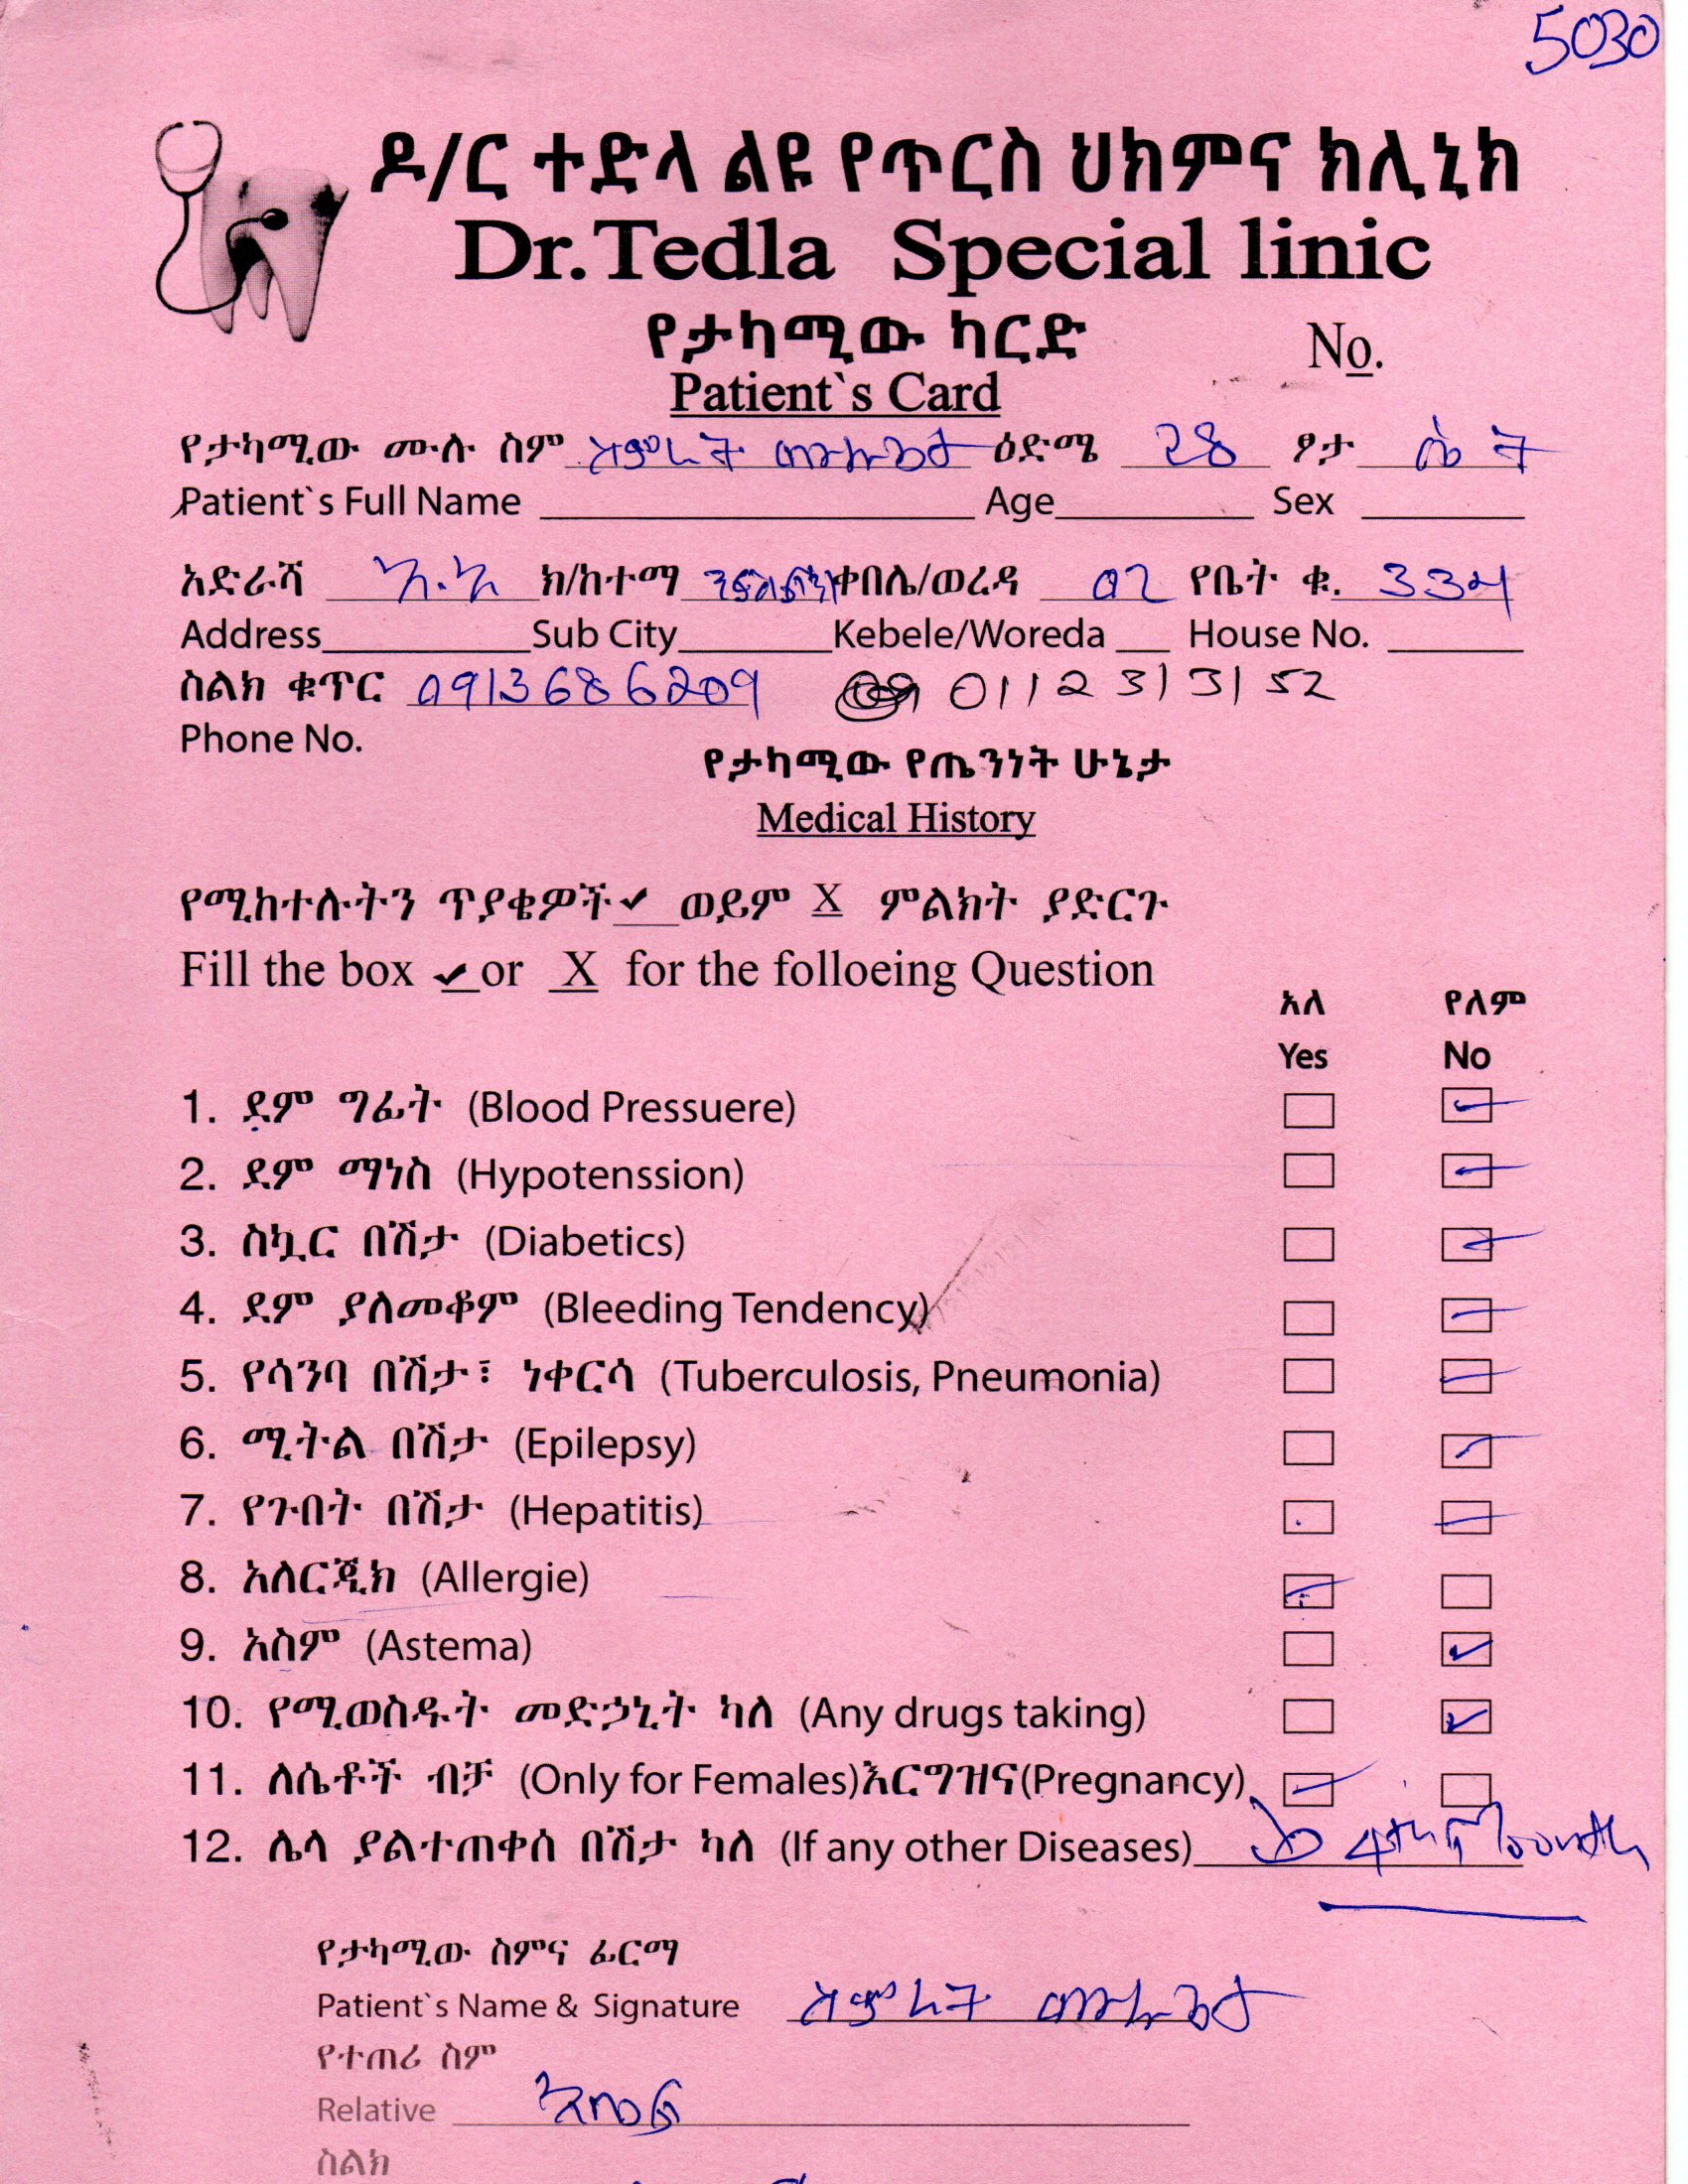 5030
ዶ/ር ተድላ ልዩ የጥርስ ህክምና ክሊኒክ
Dr.Tedla Special linic
የታካሚው ካርድ
No.
Patient`s Card
የታካሚው ሙሉ ስም ዕድሜ 28 ፆታ ሴት
Patient`s Full Name Age Sex
አድራሻ አ.አ ክ/ከተማ ቀበሌ/ወረዳ 02 የቤት ቁ. 334
Address Sub City Kebele/Woreda House No.
ስልክ ቁጥር 0913686209 0112 313152
Phone No.
የታካሚው የጤንነት ሁኔታ
Medical History
የሚከተሉትን ጥያቄዎች ✔ ወይም X ምልክት ያድርጉ
Fill the box ✔ or X for the folloeing Question
አለ የለም
Yes No
1. ደም ግፊት (Blood Pressuere)
2. ደም ማነስ (Hypotenssion)
3. ስኳር በሽታ (Diabetics)
4. ደም ያለመቆም (Bleeding Tendency)
5. የሳንባ በሽታ፣ ነቀርሳ (Tuberculosis, Pneumonia)
6. ሚትል በሽታ (Epilepsy)
7. የጉበት በሽታ (Hepatitis)
8. አለርጂክ (Allergie)
9. አስም (Astema)
10. የሚወስዱት መድኃኒት ካለ (Any drugs taking)
11. ለሴቶች ብቻ (Only for Females)እርግዝና(Pregnancy)
12. ሌላ ያልተጠቀሰ በሽታ ካለ (If any other Diseases) 4th month
የታካሚው ስምና ፊርማ
Patient`s Name & Signature
የተጠሪ ስም
Relative
ስልክ